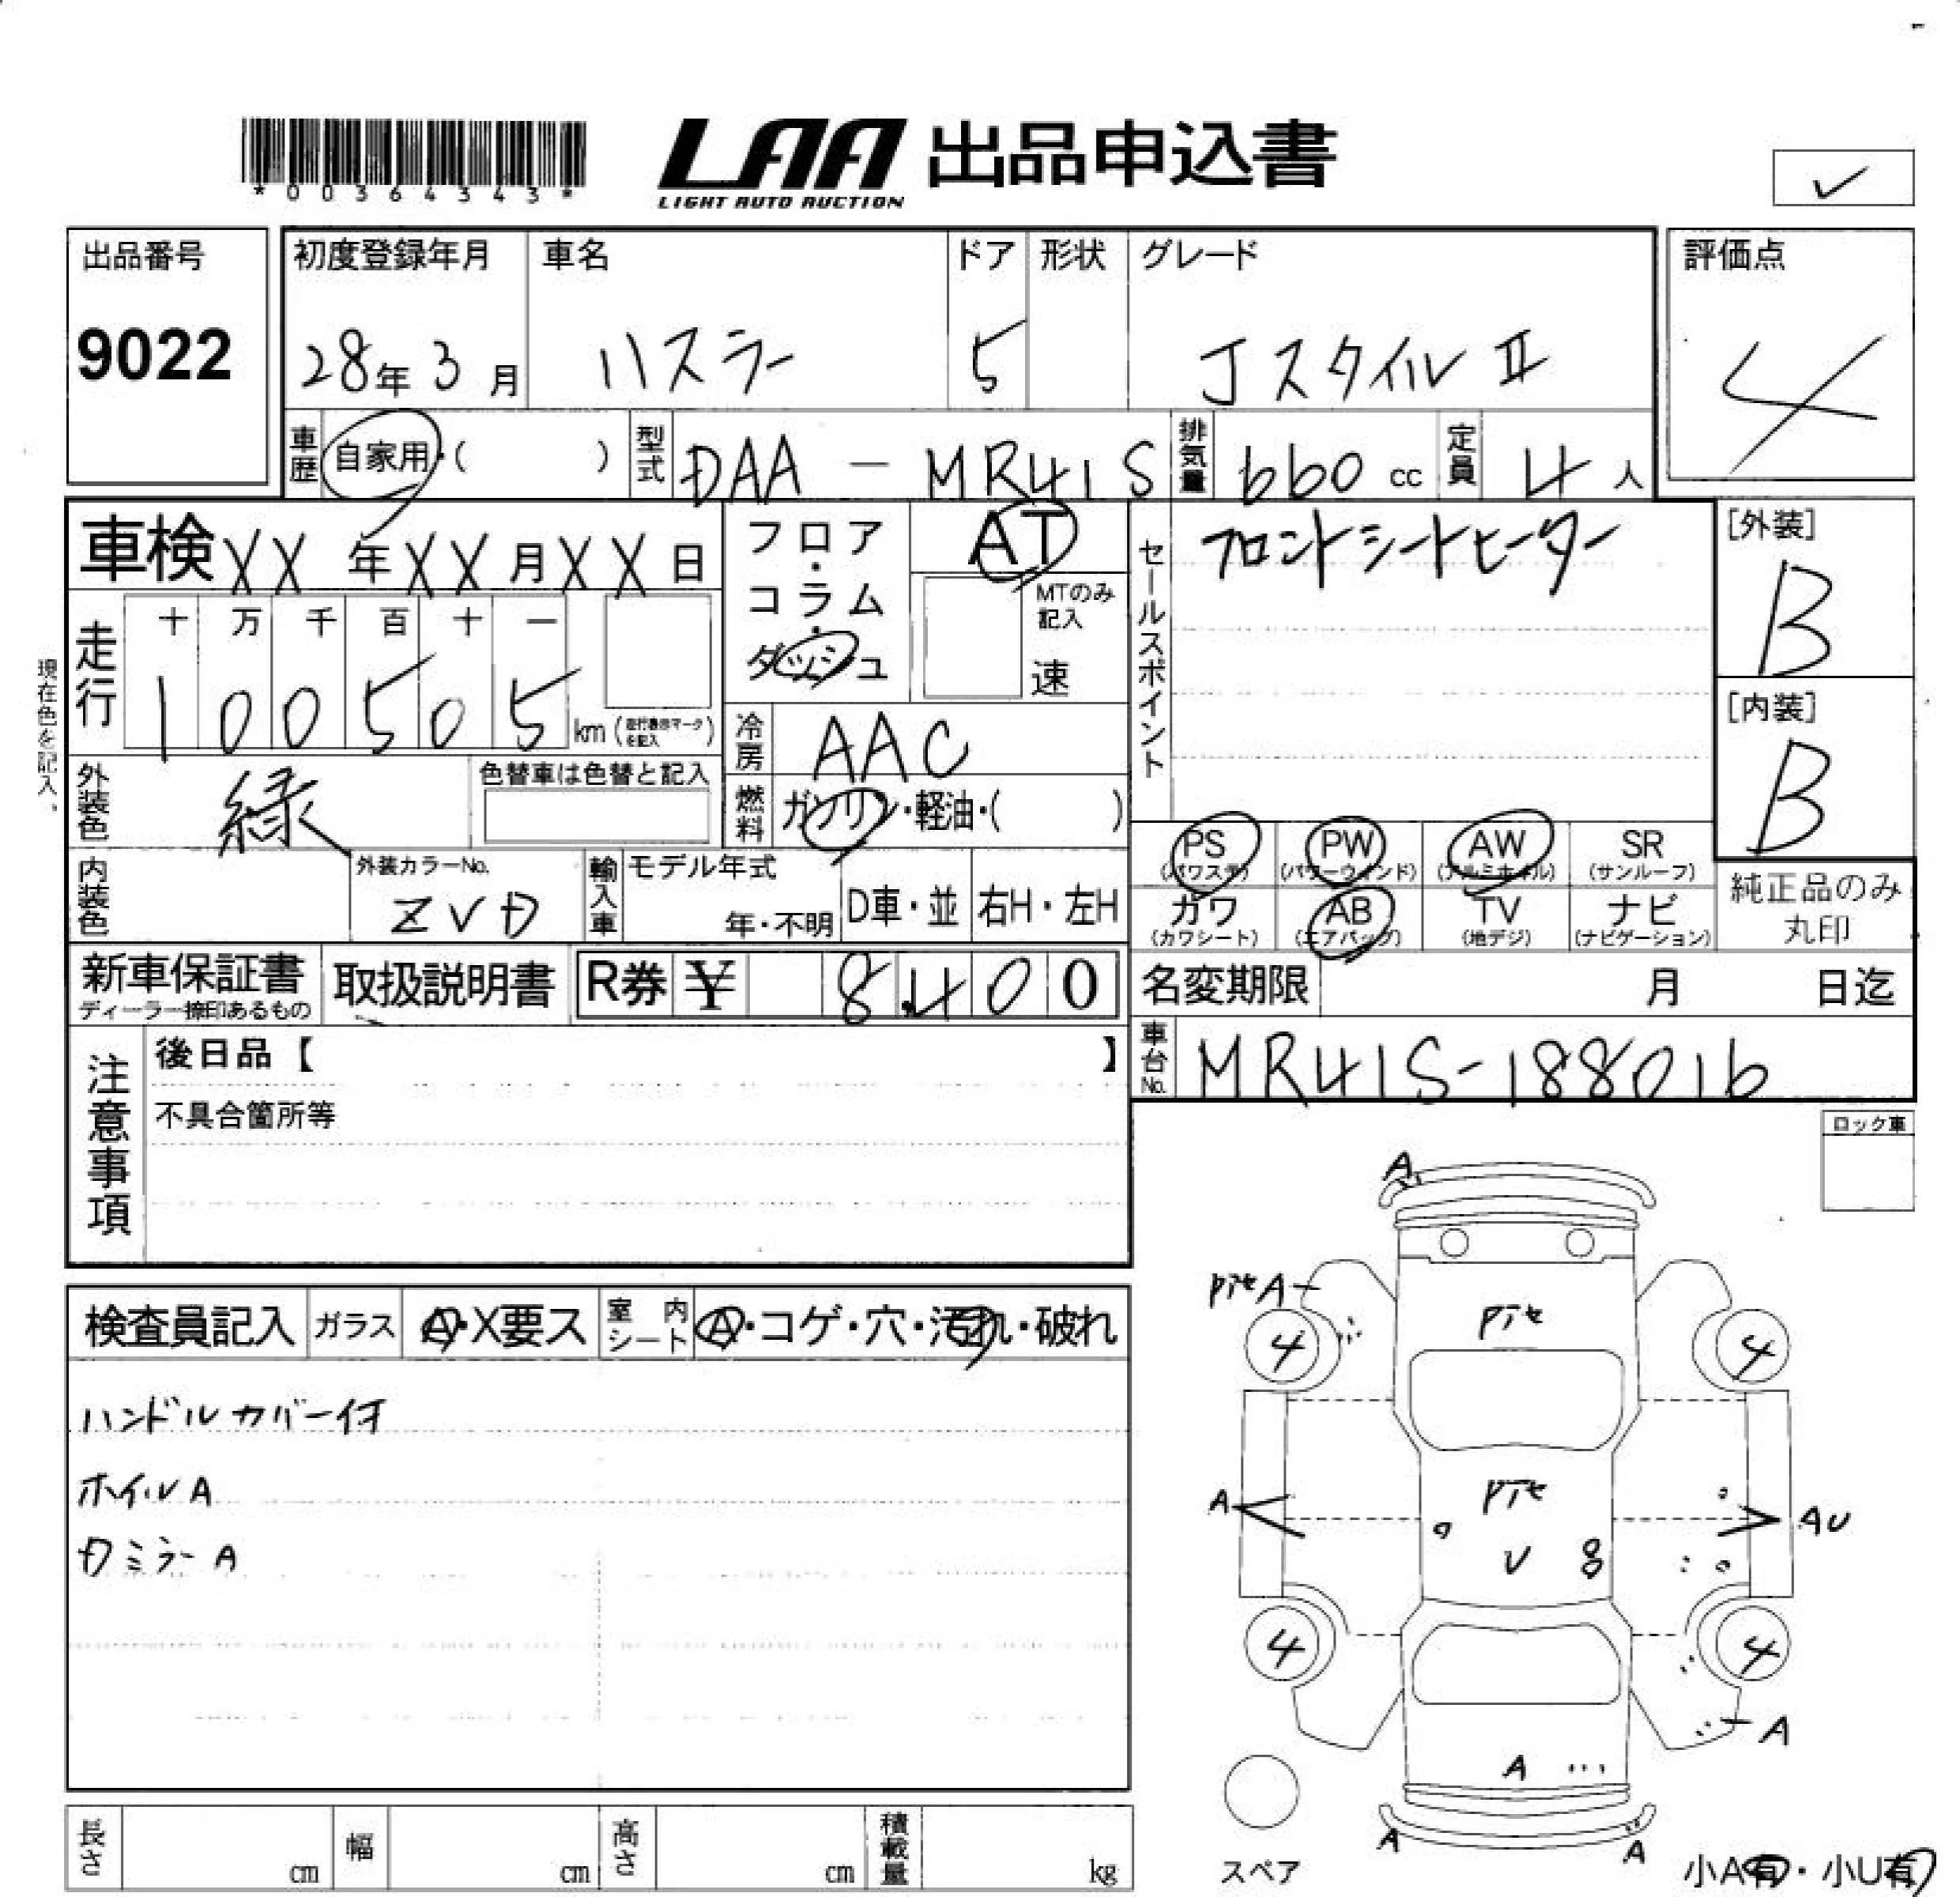 *00364343*
LAA 出品申込書
LIGHT AUTO AUCTION
✓
出品番号
9022
初度登録年月 車名 ドア 形状 グレード
28年 3月 ハスラー 5 JスタイルⅡ
評価点
4
車歴 自家用・( ) 型式 DAA - MR41S 排気量 660 cc 定員 4人
車検 XX年XX月XX日
フロア・コラム・ダッシュ
AT
MTのみ記入
速
セールスポイント
フロントシートヒーター
[外装]
B
[内装]
B
現在色を記入、
走行
十 万 千 百 十 一
1 0 0 5 0 5 km (走行表示マークを記入)
冷房 AAC
外装色 緑 色替車は色替と記入
燃料 ガソリン・軽油・( )
PS (パワステ) PW (パワーウインド) AW (アルミホイル) SR (サンルーフ)
カワ (カワシート) AB (エアバッグ) TV (地デジ) ナビ (ナビゲーション)
純正品のみ丸印
内装色 外装カラーNo. ZVD
輸入車 モデル年式 年・不明 D車・並 右H・左H
新車保証書 ディーラー捺印あるもの
取扱説明書
R券 ¥ 8,400
名変期限 月 日迄
車台No. MR41S-188016
注意事項
後日品【 】
不具合箇所等
ロック車
検査員記入 ガラス A・X要ス 室内シート A・コゲ・穴・汚れ・破れ
ハンドルカバー付
ホイルA
カミラーA
A
pitA
pit
4 4
A
pit
U 8
AU
4 4
A
A
A A
スペア
小A有・小U有
長さ cm 幅 cm 高さ cm 積載量 kg